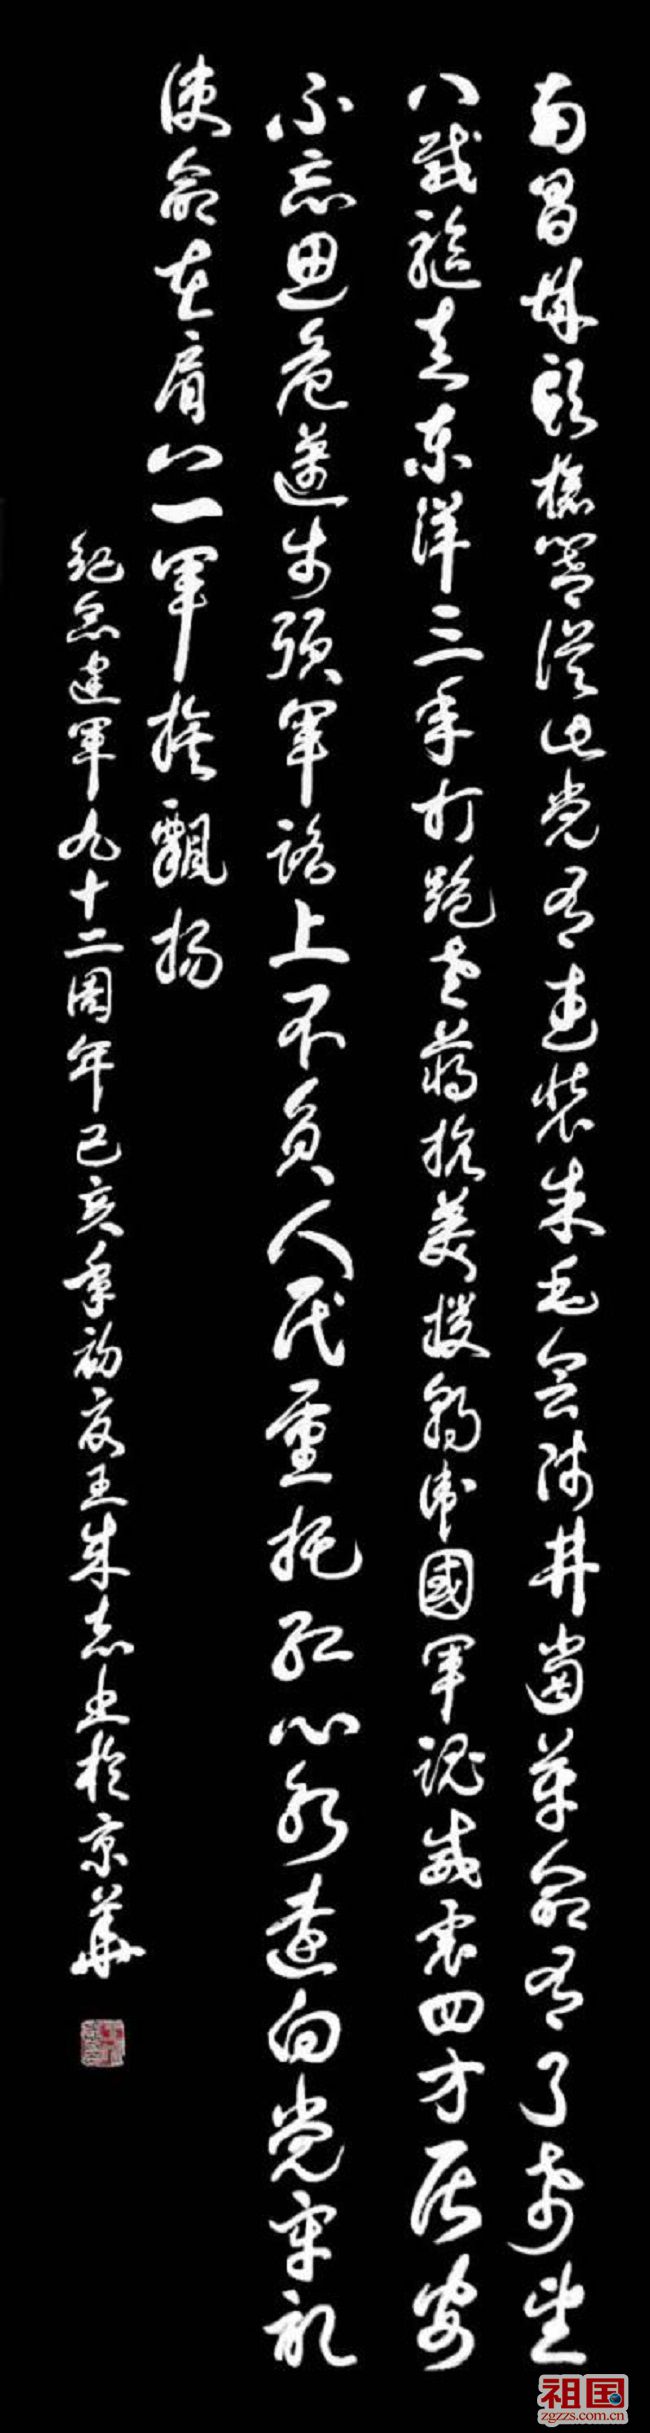 南昌城頭槍響從此党有武裝朱毛会师井崗革命有了希望
八载驱走东洋三年打跑老蒋抗美援朝卫國军魂威震四方居安
不忘思危迈步强军路上不负人民重托红心永远向党牢记
使命在肩八一军旗飘扬
纪念建军九十二周年己亥年初夏王志书於京華
祖国
zgzzs.com.cn